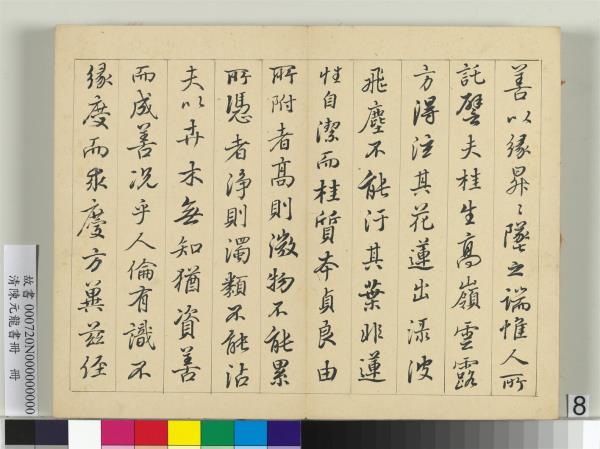 善以緣昇昇墜之端惟人所
託譬夫桂生高嶺雲露
方得泫其花蓮出淥波
飛塵不能汙其葉非蓮
性自潔而桂質本貞良由
所附者高則微物不能累
所憑者淨則濁類不能沾
夫以卉木無知猶資善
而成善況乎人倫有識不
緣慶而求慶方冀茲經
故書000720N000000000
清陳元龍書冊 冊
8